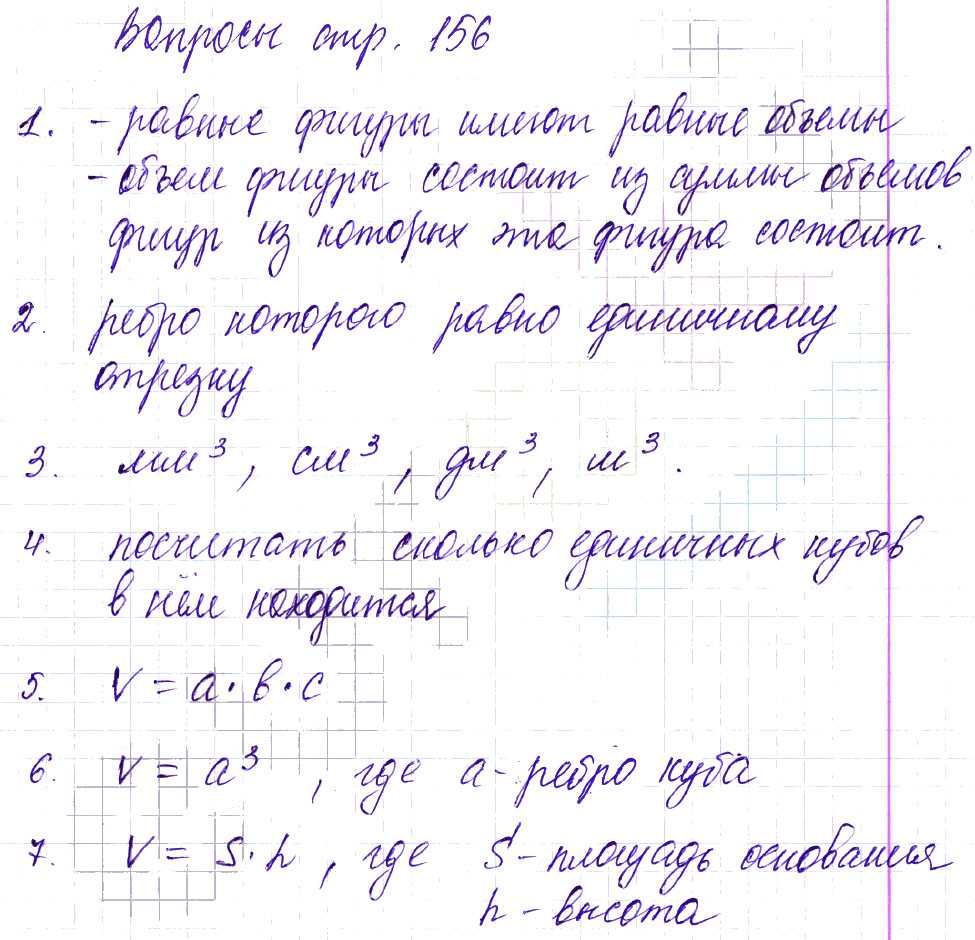 Вопросы стр. 156
1. - равные фигуры имеют равные объемы
- объем фигуры состоит из суммы объемов
фигур из которых эта фигура состоит.
2. ребро которого равно единичному
отрезку
3. мм³, см³, дм³, м³.
4. посчитать сколько единичных кубов
в нём находится
5. V = a · в · c
6. V = a³, где a - ребро куба
7. V = S · h, где S - площадь основания
h - высота